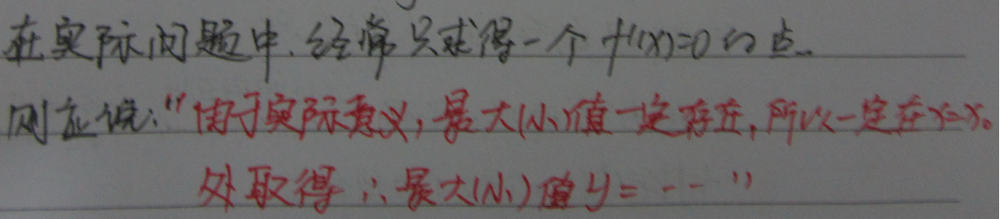 在实际问题中,经常只求得一个f'(x)=0的点.
则应说:"由于实际意义,最大(小)值一定存在,所以一定在x=x₀
处取得∴最大(小)值y=---"